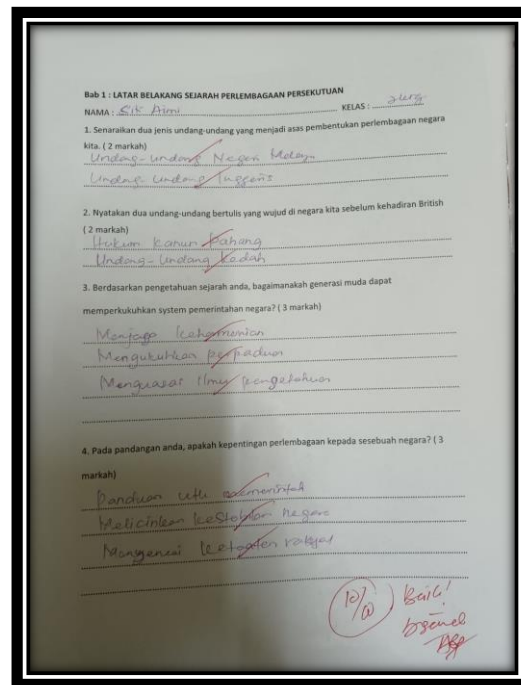 Bab 1 : LATAR BELAKANG SEJARAH PERLEMBAGAAN PERSEKUTUAN
NAMA : Siti Aimi KELAS :
1. Senaraikan dua jenis undang-undang yang menjadi asas pembentukan perlembagaan negara
kita. ( 2 markah)
Undang-undang Negeri Melayu
Undang-Undang Inggeris
2. Nyatakan dua undang-undang bertulis yang wujud di negara kita sebelum kehadiran British
( 2 markah)
Hukum Kanun Pahang
Undang-Undang Kedah
3. Berdasarkan pengetahuan sejarah anda, bagaimanakah generasi muda dapat
memperkukuhkan system pemerintahan negara? ( 3 markah)
Menjaga keharmonian
Mengukuhkan perpaduan
Menguasai ilmu pengetahuan
4. Pada pandangan anda, apakah kepentingan perlembagaan kepada sesebuah negara? ( 3
markah)
Panduan utk
Melicinkan kestabilan negara
rakyat
10/10 Baik!